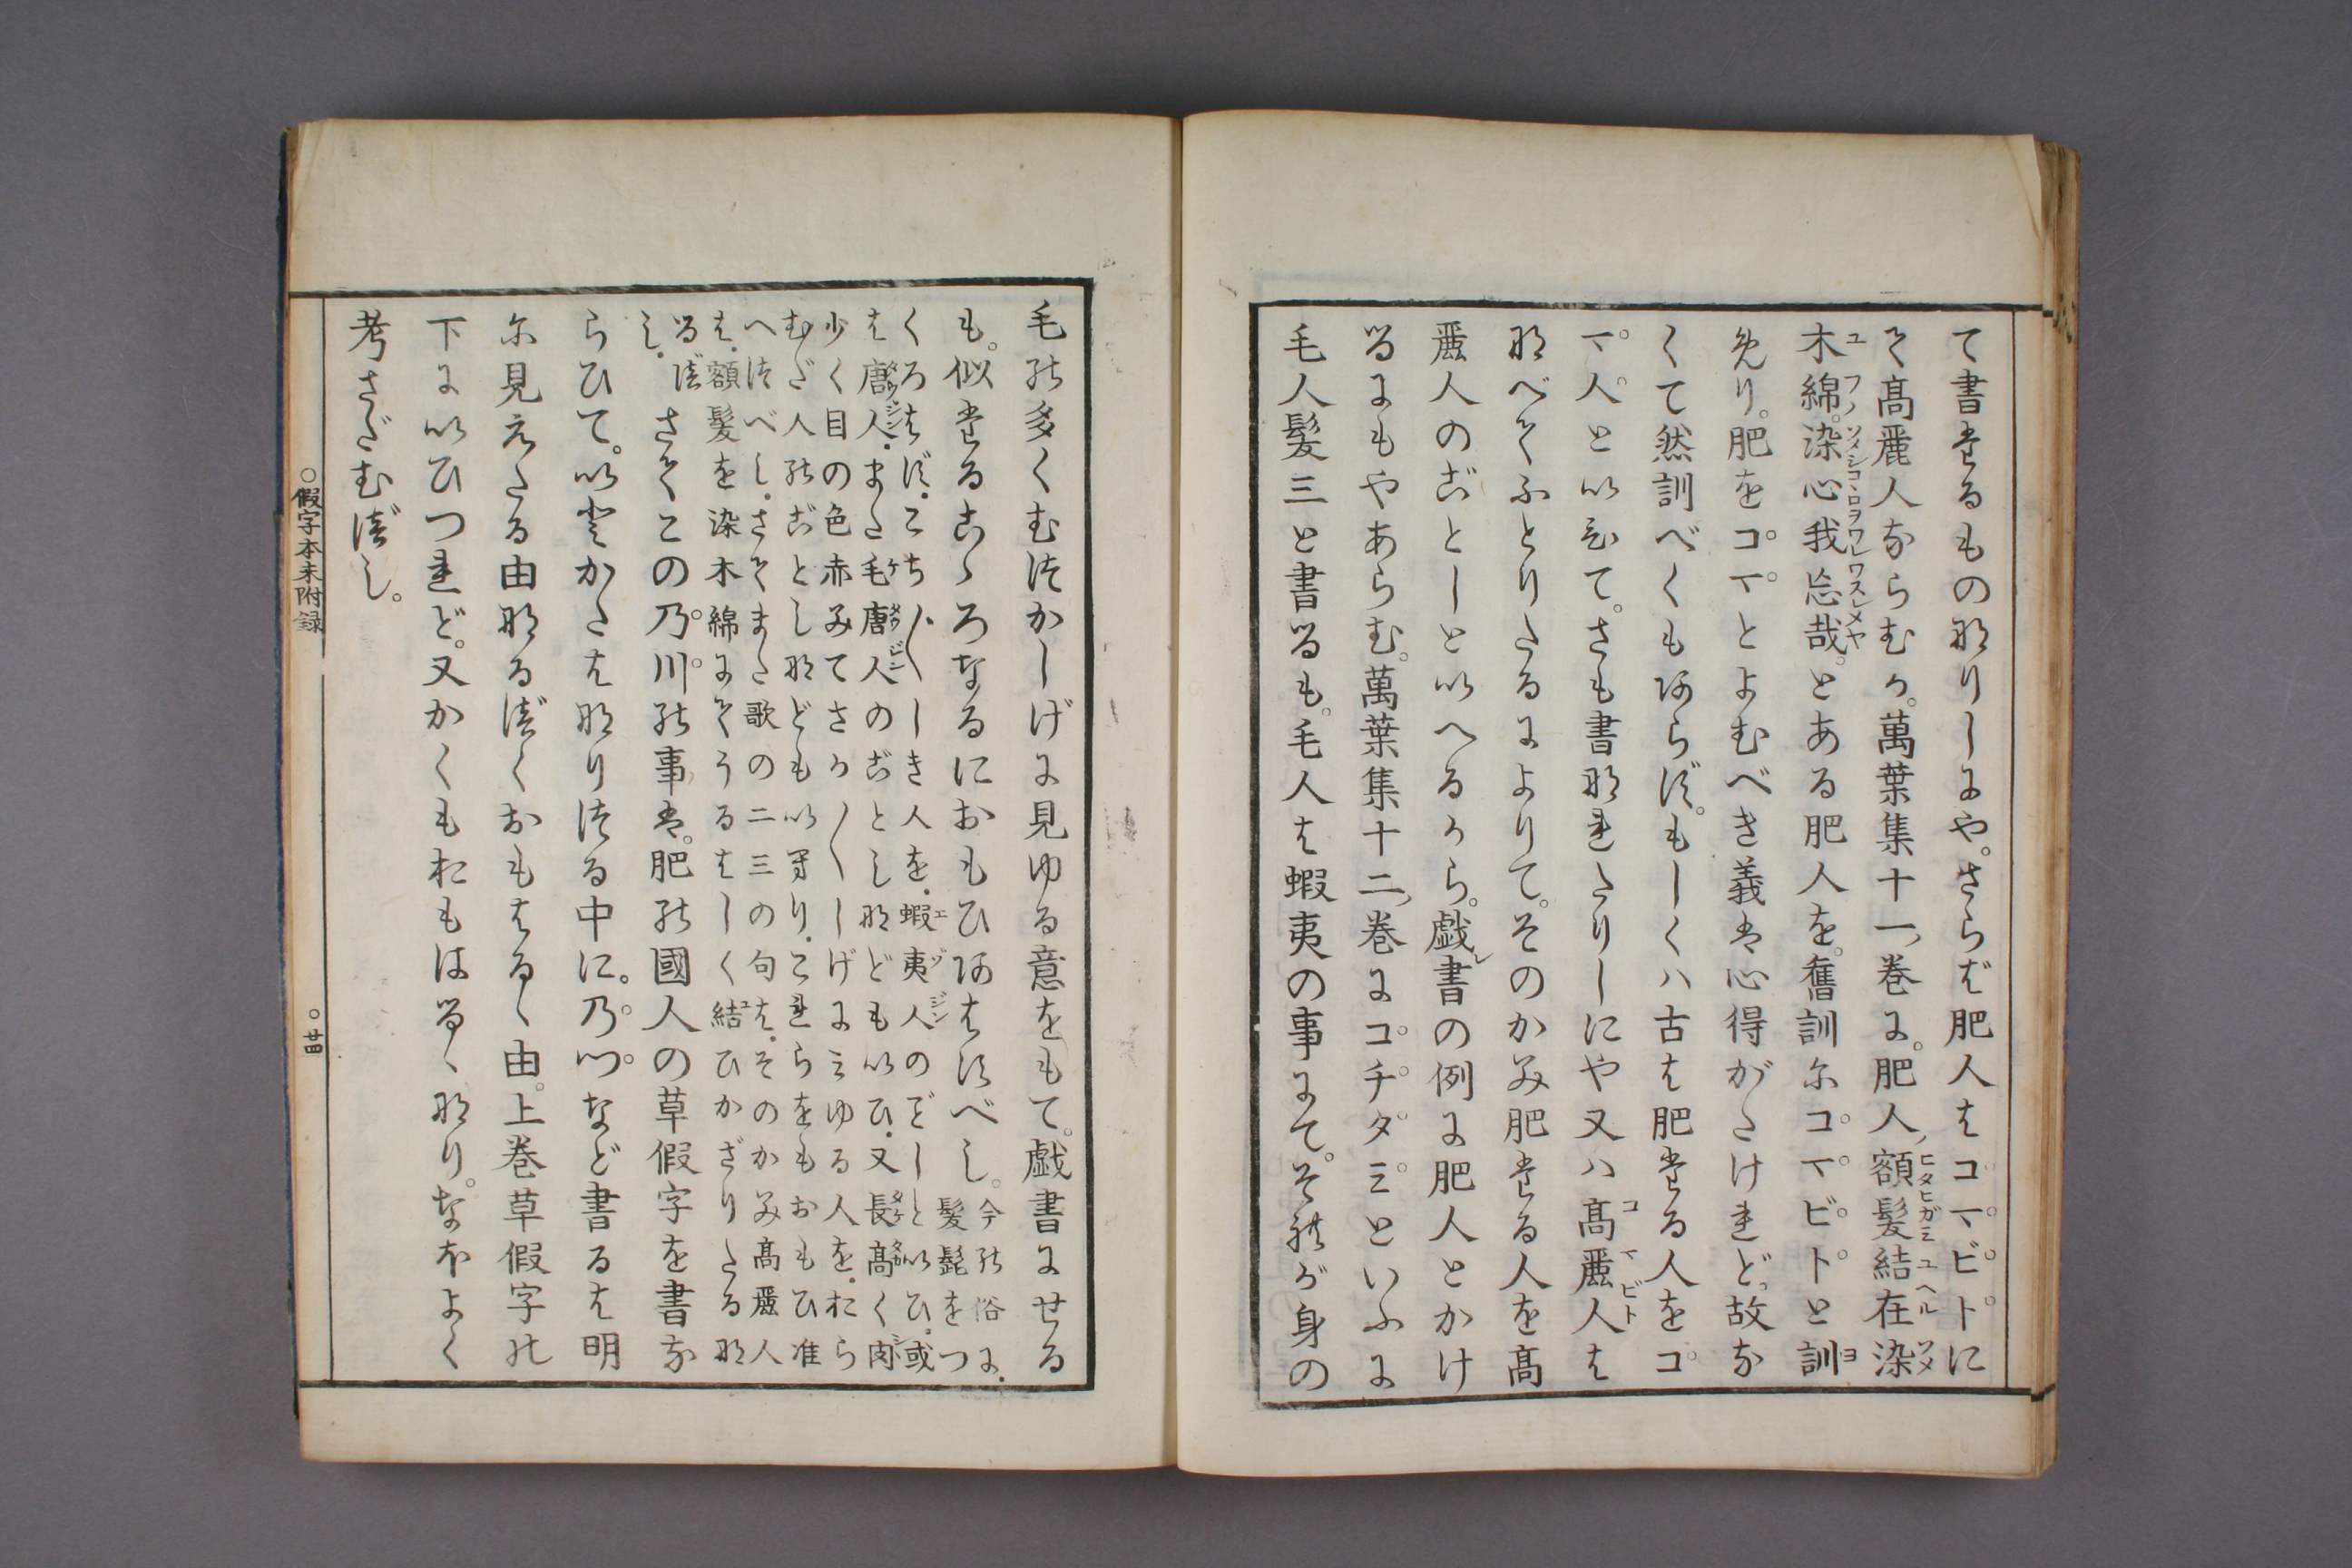 て書たるものなりしにや。さらば肥人はコマビトに
て高麗人ならむか。萬葉集十一巻に。肥人額髪結在染
木綿。染心我忘哉。とある肥人を。舊訓にコマビトと訓
めり。肥をコマとよむべき義は心得がたけれど。故な
くて然訓べくもあらず。もしくハ古は肥たる人をコ
マ人といひて。さも書なれたりしにや又ハ高麗人は
なべてふとりたるによりて。そのかみ肥たる人を高
麗人のごとしといへるから。戯書の例に肥人とかけ
るにもやあらむ。萬葉集十二巻にコチダミといふに
毛人髪三と書るも。毛人は蝦夷の事にて。それが身の
毛の多くむつかしげに見ゆる意をもて。戯書にせる
も。似たるこゝろなるにおもひあはすべし。
今の俗に。
髪髭をつ
くろはず。こち〴〵しき人を。蝦夷人のごとしといひ。或
は唐人。また毛唐人のごとしなどもいひ。又長高く肉
少く目の色赤みてさか〳〵しげにみゆる人を。おら
むだ人のごとしなどもいへり。これらをもおもひ准
へつべし。さてまた歌の二三の句は。そのかみ高麗人
は。額髪を染木綿にてうるはしく結ひかざりたるな
るべ
し。
さてこの乃川の事は。肥の國人の草假字を書な
らひて。いとかたはなりつる中に。乃つなど書るは明
に見えたる由なるべくおもはるゝ由。上巻草假字の
下にいひつれど。又かくもおもはるゝなり。なほよく
考さだむべし。
○假字本末附録 ○廿四